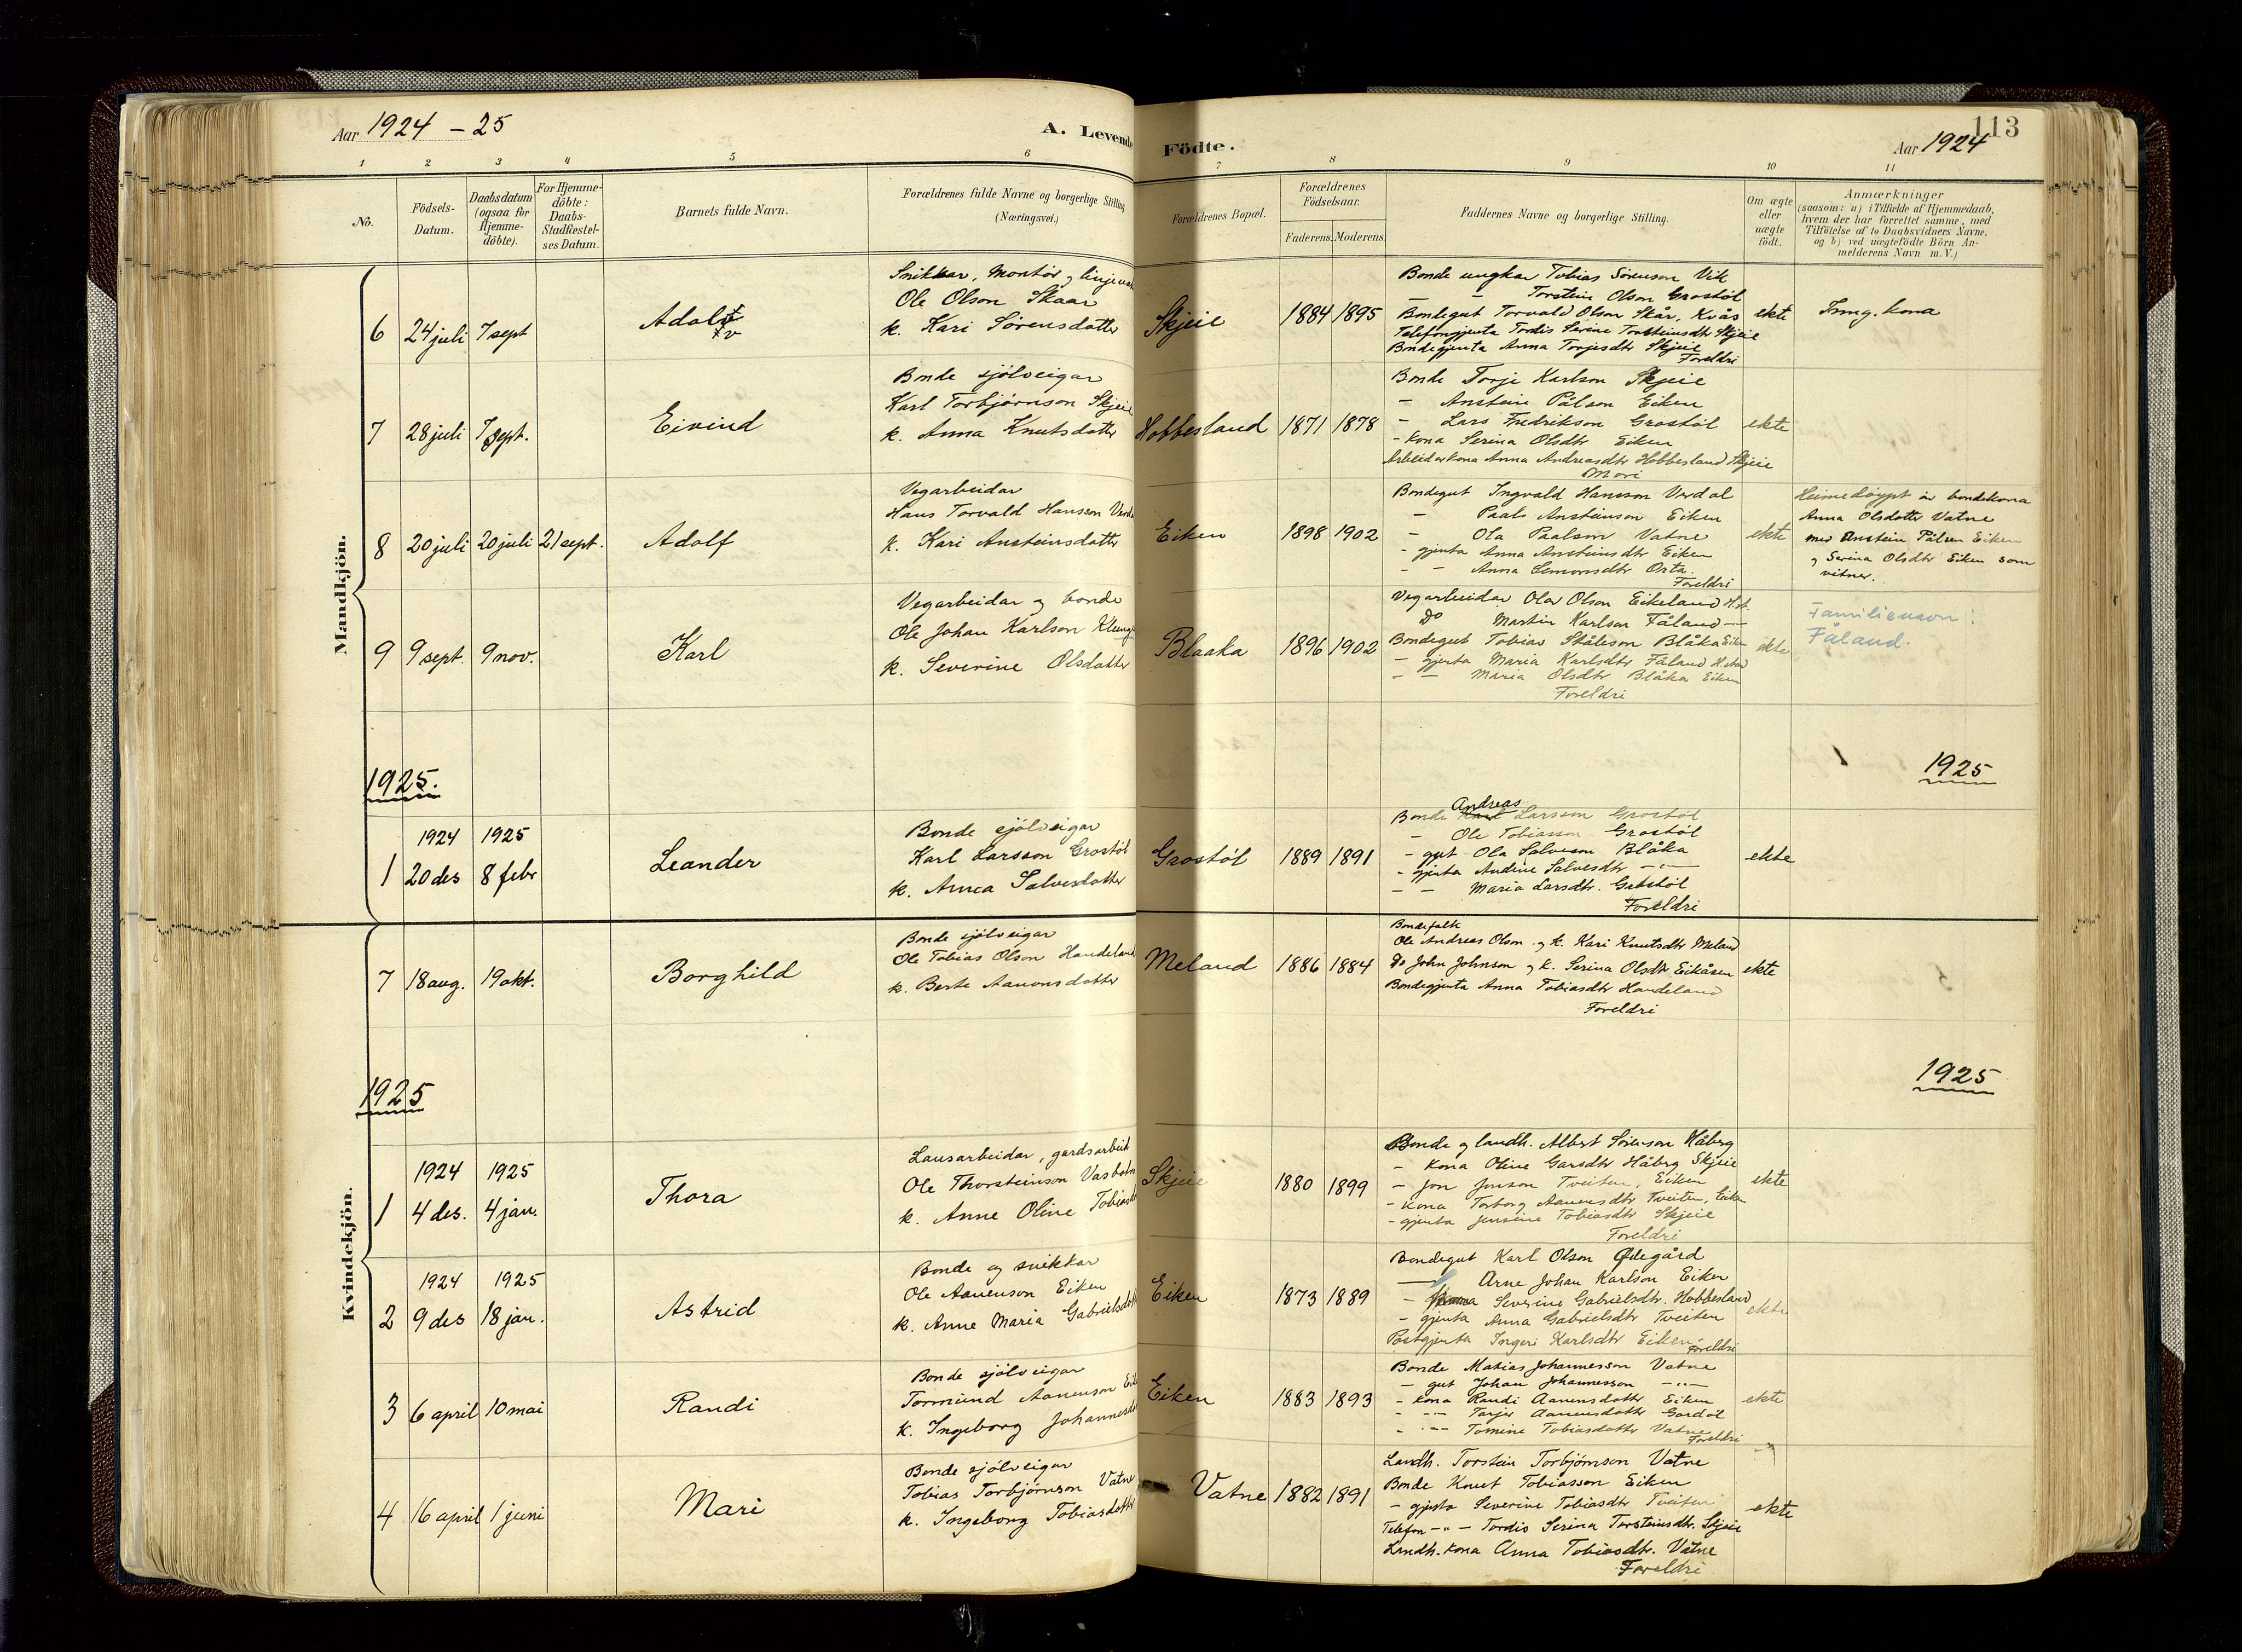 Aar 1924 - 25
A. Levende Födte.
113
Aar 1924
1 2 3 4 5 6 7 8 9 10 11
No.
Födsels-
Datum.
Daabsdatum
(ogsaa for
Hjemme-
döbte).
For Hjemme-
döbte:
Daabs-
Stadfæstel-
ses Datum.
Barnets fulde Navn.
Forældrenes fulde Navne og borgerlige Stilling
(Næringsvei.)
Forældrenes Bopæl.
Forældrenes
Födselsaar.
Faderens. Moderens.
Faddernes Navne og borgerlige Stilling.
Om ægte
eller
uægte
födt.
Anmærkninger
(saasom: a) i Tilfælde af Hjemmedaab,
hvem der har forrettet samme, med
Tilföielse af to Daabsvidners Navne.
og b) ved uægtefödte Börn An-
melderens Navn m. V.)
Mandkjön.
6 24 juli 7 sept
Snikkar, montör og
Ole Olson Skaar
k. Kari Sörensdotter
Skjeie
1884 1895
Bonde ungkar Tobias Sörenson Vik
— — Torstein Olson Grostöl
Bondegut Torvald Olson Skår, Kvås
Telefongjenta Tordis Serine Torsteinsdtr Skjeie
Bondegjenta Anna Torjesdtr Skjeie
Foreldri
ekte
kona
7 28 juli 7 sept.
Eivind
Bonde sjölveigar
Karl Torbjörnson Skjeie
k. Anna Knutsdotter
Hobbesland
1871 1878
Bonde Torje Karlson Skjeie
— Anstein Pålson Eiken
— Lars Fredrikson Grostöl
- kona Serina Olsdtr Eiken
Arbeidarkona Anna Andreasdtr Hobbesland Skjeie
Mori
ekte
8 20 juli 20 juli 21 sept.
Adolf
Vegarbeidar
Hans Torvald Hansson
k. Kari Ansteinsdotter
Eiken
1898 1902
Bondegut Ingvald Hansson Verdal
— Paals Ansteinson Eiken
— Ola Paalson Vatne
- gjenta Anna Ansteinsdtr Eiken
- - Anna Simonsdtr Osta.
Foreldri
ekte
Heimedöypt av bondekona
Anna Olsdotter Vatne
med Anstein Pålsen Eiken
og Serina Olsdtr Eiken som
vitner.
9 9 sept. 9 nov.
Karl
Vegarbeidar og bonde
Ole Johan Karlson
k. Severine Olsdotter
Blaaka
1896 1902
Vegarbeidar Olav Olson Eikeland
do Martin Karlson Fåland —
Bondegut Tobias Ståleson Blåka Eiken
- gjenta Maria Karlsdtr Fåland
- - Maria Olsdtr Blåka Eiken
Foreldri
ekte
Familienavn:
Fåland.
1925.
1925
1924 1925
1 20 des 8 febr
Leander
Bonde sjölveigar
Karl Larsson Grostöl
k. Anna Salvesdotter
Grostöl
1889 1891
Andreas
Bonde Larsson Grostöl
- Ole Tobiasson Grostöl
- gut Ola Salveson Blåka
- gjenta Andrine Salvesdtr —"—
- - Maria Larsdtr. Grostöl
Foreldri
ekte
Kvindekjön.
7 18 aug. 19 okt.
Borghild
Bonde sjölveigar
Ole Tobias Olson Handeland
k. Berte Aanonsdotter
Meland
1886 1884
Bondefolk
Ole Andreas Olson og k. Kari Knutsdtr Meland
do John Johnson og k. Serina Olsdtr Eikåsen
Bondegjenta Anna Tobiasdtr Handeland
Foreldri
ekte
1925
1925
1924 1925
1 4 des. 4 jan.
Thora
Lausarbeidar, gardsarbeid
Ole Thorsteinson
k. Anne Oline
Skjeie
1880 1899
Bonde og landh. Albert Sörenson Håberg
- kona Oline Garsdtr Håberg Skjeie
- Jon Jonson Tveiten, Eiken
- kona Torborg Aanensdtr Tveiten, Eiken
- gjenta Jensine Tobiasdtr Skjeie
Foreldri
ekte
1924 1925
2 9 des 18 jan.
Astrid
Bonde og snikkar
Ole Aanenson Eiken
k. Anne Maria Gabrielsdotter
Eiken
1873 1889
Bondegut Karl Olson Ödegård
— Arne Johan Karlson Eiken
- Severine Gabrielsdtr. Hobbesland
- gjenta Anna Gabrielsdtr Tveiten
Postgjenta Ingeri Karlsdtr Eiken
Foreldri
ekte
3 6 april 10 mai
Randi
Bonde sjölveigar
Tormund Aanenson
k. Ingeborg
Eiken
1883 1893
Bonde Matias Johannesson Vatne
- gut Johan Johannesson —"—
- kona Randi Aanensdotter Eiken
- —"— Aanensdotter
- —"— Tomine Tobiasdotter Vatne
Foreldri
ekte
4 16 april 1 juni
Mari
Bonde sjölveigar
Tobias Torbjörnson Vatne
k. Ingeborg Tobiasdotter
Vatne
1882 1891
Landh. Torstein Torbjörnson Vatne
Bonde Knut Tobiasson Eiken
- gjenta Severine Tobiasdtr Tveiten
Telefon —"— Tordis Serina Torsteinsdtr. Skjeie
Landh. kona Anna Tobiasdtr. Vatne
Foreldri
ekte